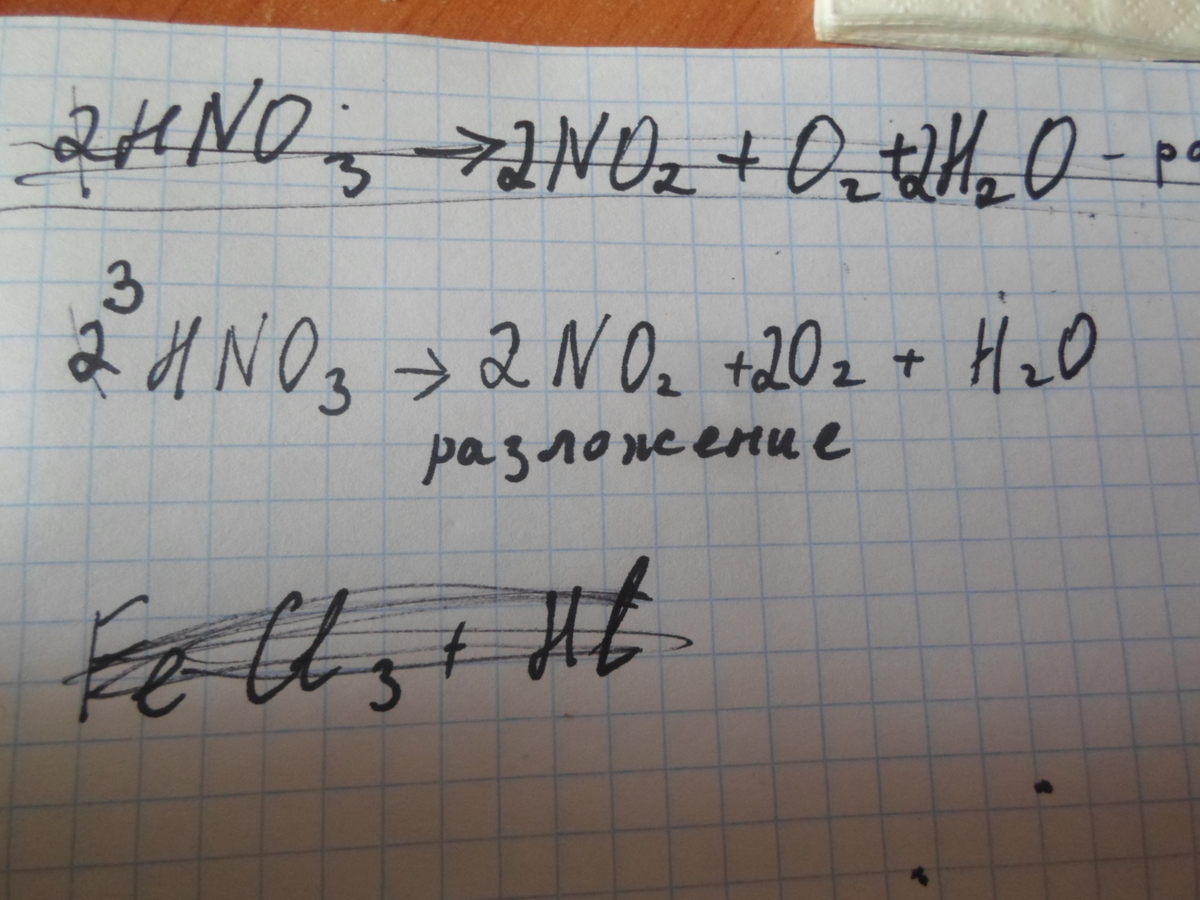 2HNO₃ → 2NO₂ + O₂ + 2H₂O - ра
2 3 HNO₃ → 2NO₂ + 2O₂ + H₂O
разложение
FeCl₃ +